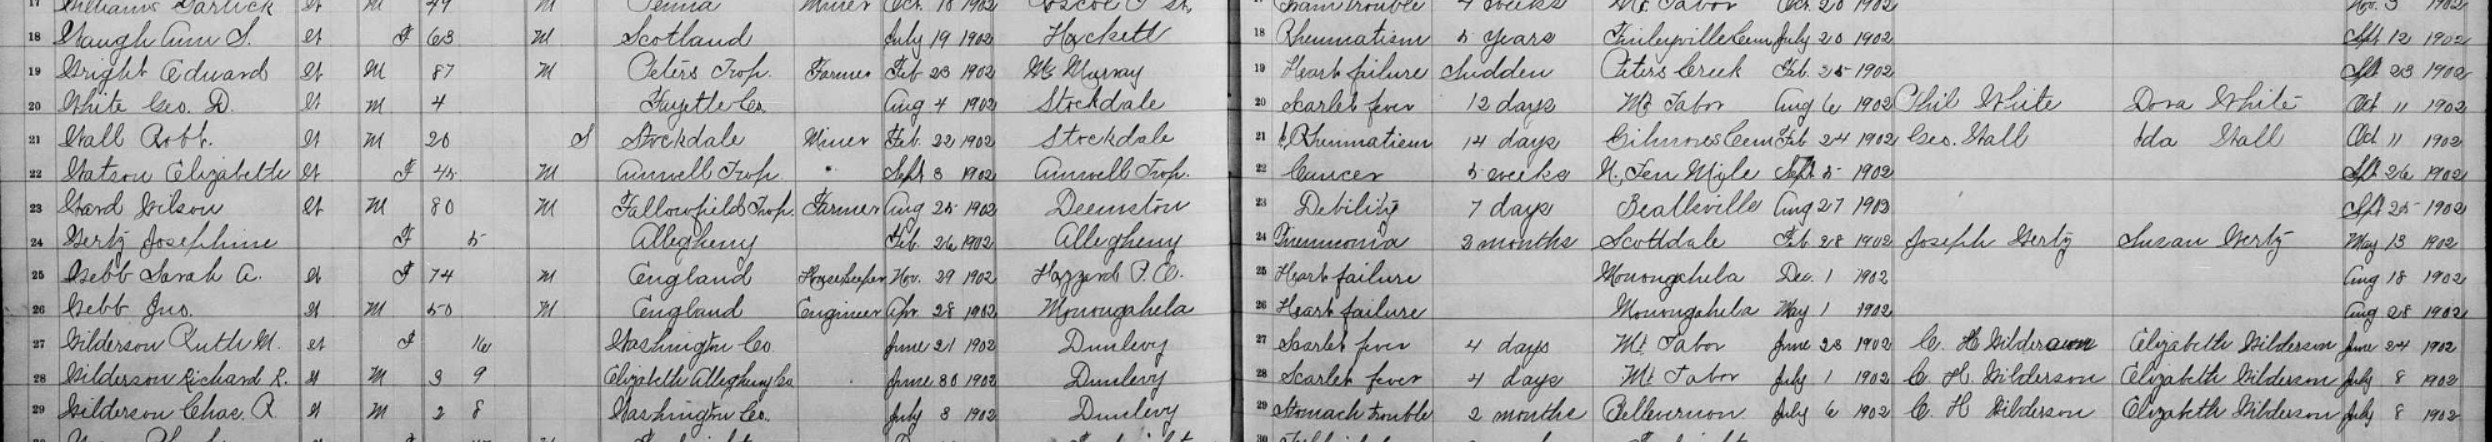 17 Williams Garlick W M 49 M Penna Miner Oct. 18 1902 Roscoe P St. 17 trouble 4 weeks Mt. Tabor Oct. 20 1902 Nov. 3 1902
18 Waugh Ann S. W F 63 M Scotland July 19 1902 Hackett 18 Rheumatism 5 years Finleyville Cem July 20 1902 Sept 12 1902
19 Wright Edward W M 87 M Peters Twp. Farmer Feb 23 1902 Mc Murray 19 Heart failure Sudden Peters Creek Feb. 25 1902 Sept 23 1902
20 White Geo. D. W M 4 Fayette Co. Aug 4 1902 Stockdale 20 Scarlet fever 12 days Mt Tabor Aug 6 1902 Phil White Dora White Oct 11 1902
21 Wall Robt. W M 20 S Stockdale Miner Feb. 22 1902 Stockdale 21 Rheumatism 14 days Gilmores Cem Feb 24 1902 Geo. Wall Ida Wall Oct 11 1902
22 Watson Elizabeth W F 45 M Amwell Twp. " Sept 3 1902 Amwell Twp. 22 Cancer 5 weeks N. Ten Mile Sept 5 1902 Sept 26 1902
23 Ward Wilson W M 80 M Fallowfield Twp. Farmer Aug 25 1902 Deemston 23 Debility 7 days Beallsville Aug 27 1903 Sept 25 1902
24 Wertz Josephine F 5 Allegheny Feb. 26 1902 Allegheny 24 Pneumonia 2 months Scottdale Feb 28 1902 Joseph Wertz Susan Wertz May 13 1902
25 Webb Sarah A. W F 74 M England Housekeeper Nov. 29 1902 Hazzard P. O. 25 Heart failure Monongahela Dec. 1 1902 Aug 18 1902
26 Webb Jno. W M 50 M England Engineer Apr. 28 1902 Monongahela 26 Heart failure Monongahela May 1 1902 Aug 28 1902
27 Wilderson Ruth M. W F 16 Washington Co. June 21 1902 Dunlevy 27 Scarlet fever 4 days Mt. Tabor June 23 1902 C. H Wilderson Elizabeth Wilderson June 24 1902
28 Wilderson Richard R. W M 3 9 Elizabeth Allegheny Co June 30 1902 Dunlevy 28 Scarlet fever 4 days Mt Tabor July 1 1902 C. H. Wilderson Elizabeth Wilderson July 8 1902
29 Wilderson Chas. R. W M 2 8 Washington Co. July 3 1902 Dunlevy 29 Stomach trouble 2 months Bellevernon July 6 1902 C. H Wilderson Elizabeth Wilderson July 8 1902